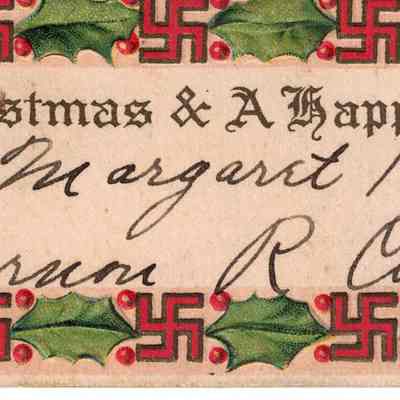 stmas & A Happ
Margaret
rnon R C